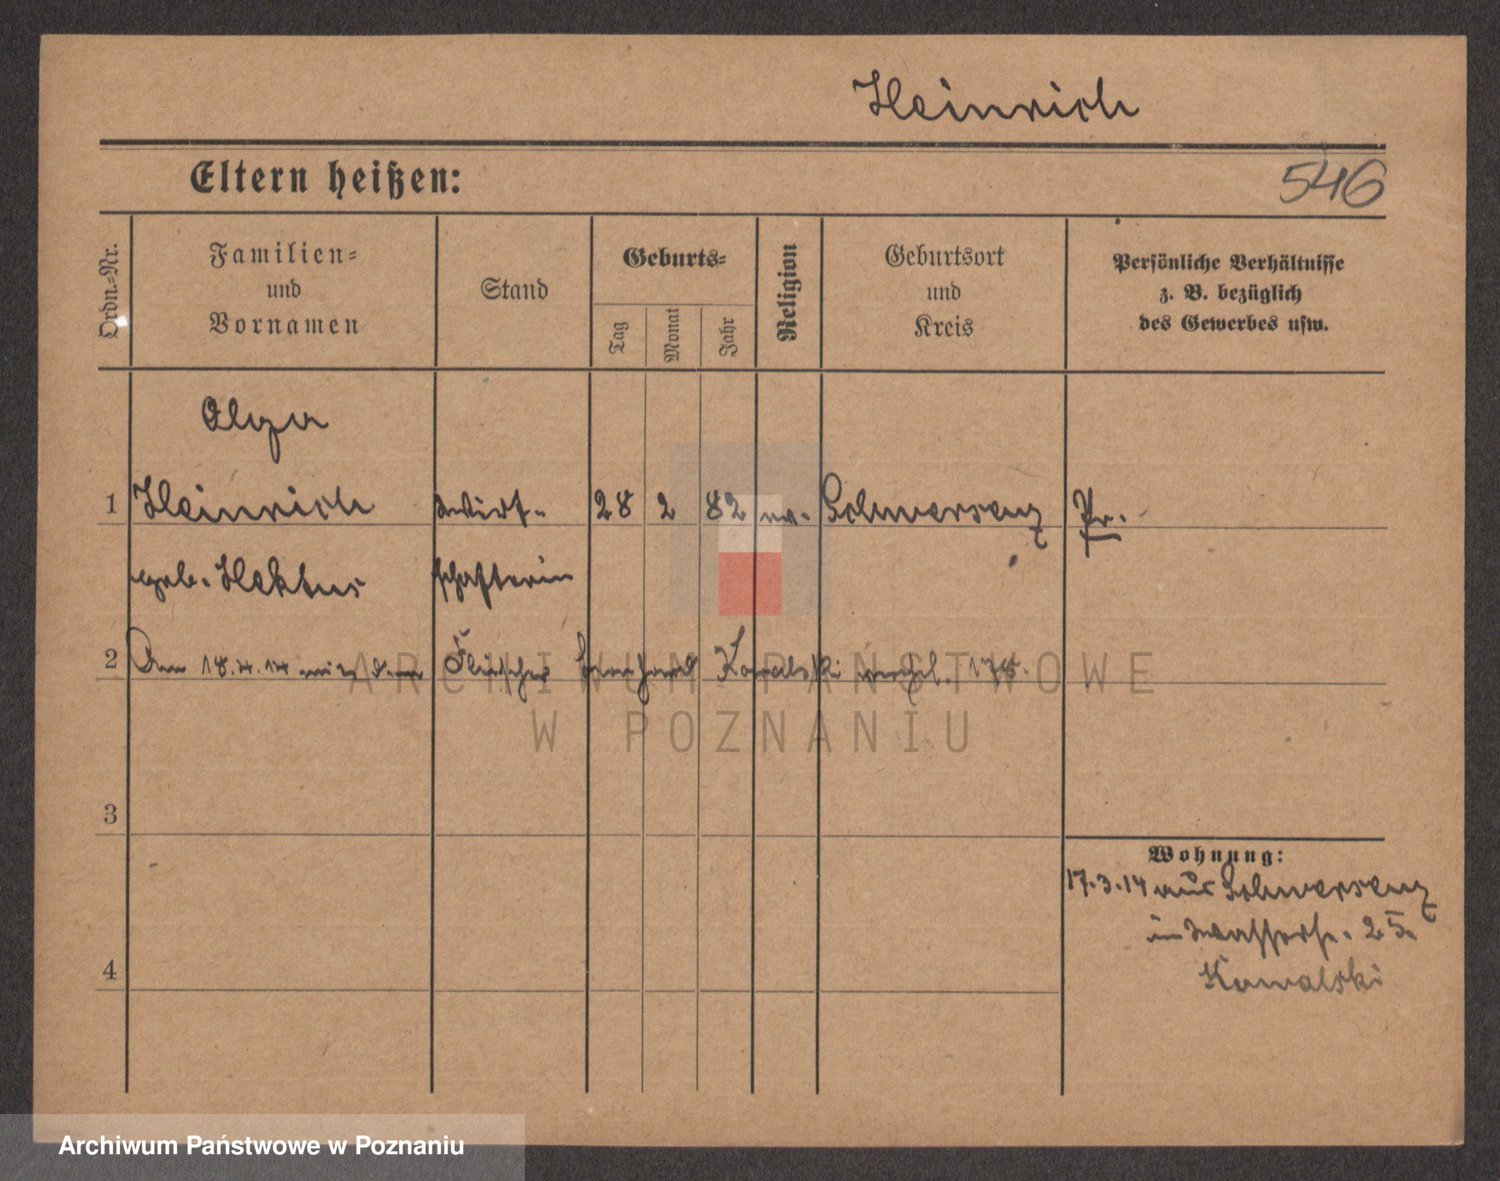 Heinrich
Eltern heißen:
546
Ordn.-Nr.
Familien-
und
Vornamen
Stand
Geburts-
Tag
Monat
Jahr
Religion
Geburtsort
und
Kreis
Persönliche Verhältnisse
z. B. bezüglich
des Gewerbes usw.
Olga
1 Heinrich Wirt- 28 2 82 ev. Schwersenz Pr.
geb. Hektus schafterin
2 Am 18.4.14 mit dem Fleischer Bernhard Kowalski verehel.
3
4
Wohnung:
17.3.14 aus Schwersenz
in Wasserstr. 25.
Kowalski
ARCHIWUM PAŃSTWOWE
W POZNANIU
Archiwum Państwowe w Poznaniu